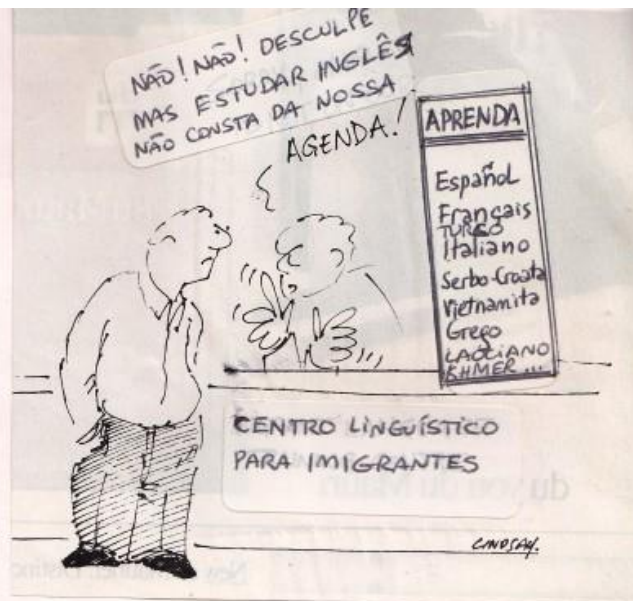 NÃO! NÃO! DESCULPE
MAS ESTUDAR INGLÊS
NÃO CONSTA DA NOSSA
AGENDA!
APRENDA
Español
Français
TURCO
Italiano
Serbo-Croata
Vietnamita
Grego
LAOCIANO
KHMER ...
CENTRO LINGUÍSTICO
PARA IMIGRANTES